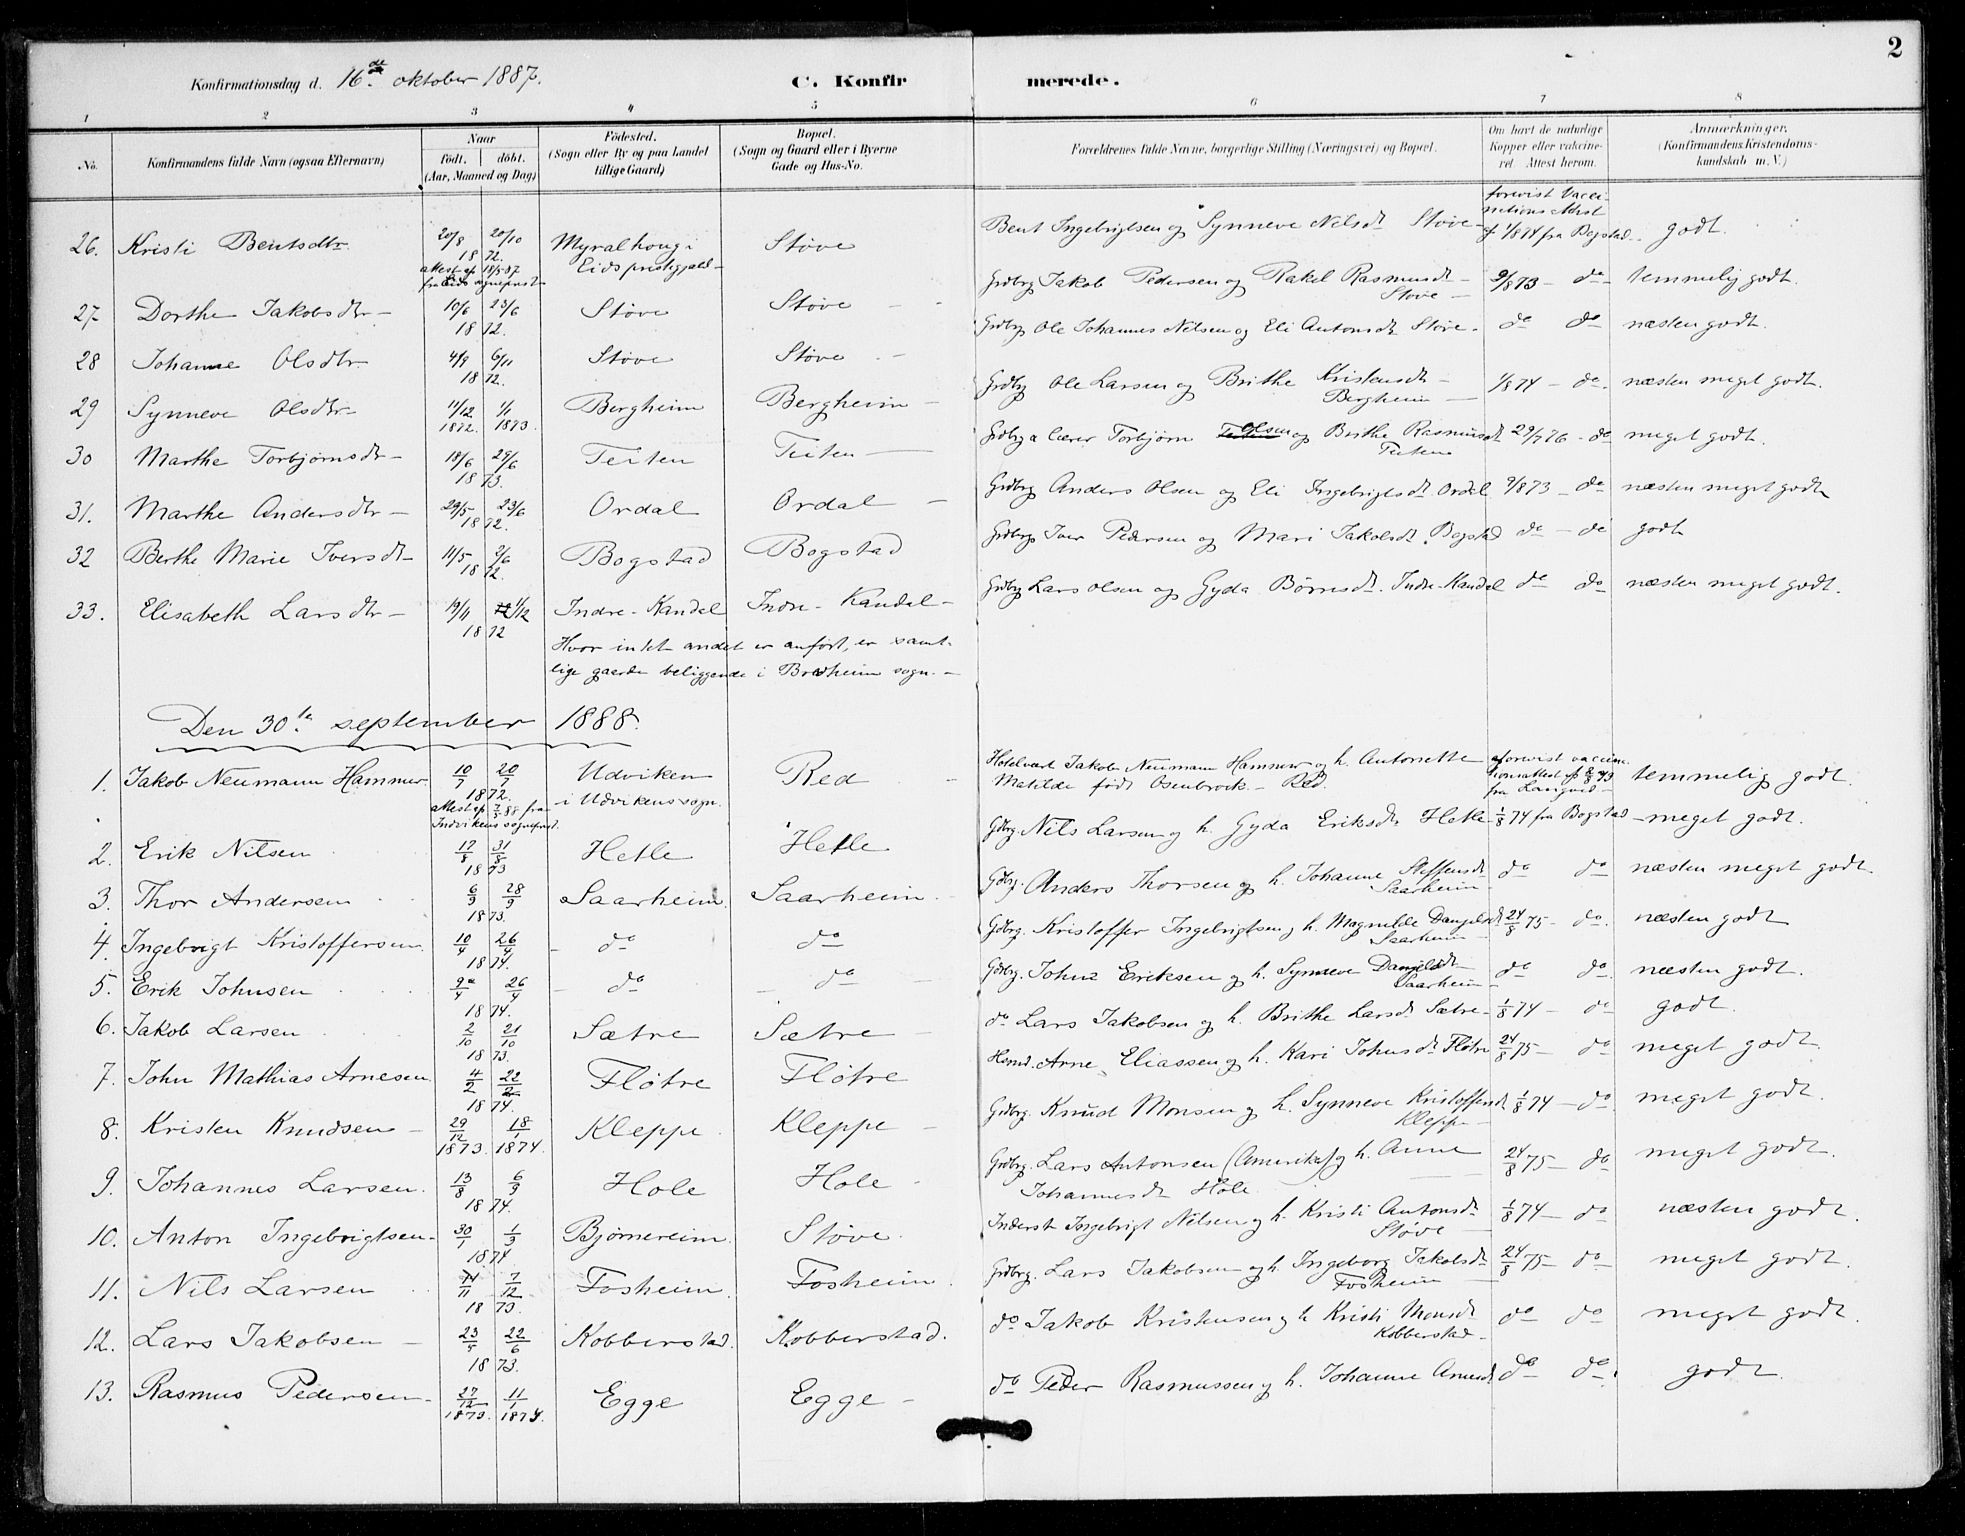 2
Konfirmationsdag d. 16de oktober 1887.
C. Konfirmerede.
1 2 3 4 5 6 7 8
No.
Konfirmandens fulde Navn (ogsaa Efternavn)
Naar
födt. döbt.
(Aar, Maaned og Dag)
Födested.
(Sogn eller By og paa Landet
tillige Gaard)
Bopæl.
(Sogn og Gaard eller i Byerne
Gade og Hus-No.
Forældrenes fulde Navne, borgerlige Stilling (Næringsvei) og Bopæl.
Om havt de naturlige
Kopper eller vaccine-
ret Attest herom.
Anmærkninger.
(Konfirmandens Kristendoms-
kundskab m. V.)
26. Kristi Bentsdtr 20/8 20/10 1872. Myralhoug i Eids prestegjæld – Støve Bent Ingebrigtsen og Synneve Nilsdt Støve – forevist Vacci-nations Attest af 1/8 74 fra Bogstad – godt.
27 Dorthe Jakobsdtr – 10/6 23/6 1872. Støve Støve – Grdbrg Jakob Pedersen og Rakel Rasmusdt – Støve – 9/8 73 – do temmelig godt.
28 Johanne Olsdtr 4/9 6/11 1872. Støve Støve – Grdbrg Ole Johannes Nilsen og Eli Antonsdt Støve – do do næsten godt.
29 Synneve Olsdtr 11/12 1872. 1/1 1873. Bergheim Bergheim – Grdbrg Ole Larsen og Brithe Kristensdtr – Bergheim – 1/8 74 – do. næsten meget godt.
30 Marthe Torbjørnsdtr – 18/6 29/6 1873. Teiten Teiten – Grdbrg & lærer Torbjørn Olsen og Brithe Rasmusdt Teiten 29/7 76 – do meget godt.
31. Marthe Andersdtr – 29/5 23/6 1872. Ordal Ordal – Grdbrg Anders Olsen og Eli Ingebrigtsdt Ordal 9/8 73 – do næsten meget godt
32 Berthe Marie Iversdt – 11/5 2/6 1872. Bogstad Bogstad Grdbrg Iver Pedersen og Mari Jakobsdt Bogstad do – do godt
33. Elisabeth Larsdtr – 19/11 1/12 1872 Indre-Kandal Indre-Kandal – Grdbrg Lars Olsen og Gyda Børresdt. Indre-Kandal do do næsten meget godt.
Hvor intet andet er anført, er samt-
lige gaarde beliggende i Bredheim sogn. –
Den 30te september 1888.
1. Jakob Neumann Hammer 10/7 20/7 1872. attest af 7/5 88 fra Indvikens sogneprest. Udviken i Udvikens sogn. Red – Hotelvært Jakob Neumann Hammer og h. Antonette Matilde født Osenbrock – Red. forevist vaccina-tionsattest af fra temmelig godt.
2. Erik Nilsen 17/8 31/8 1873 Hetle Hetle Gdbrg. Nils Larsen og h. Gyda Eriksdt. Hetle 1/8 74 fra Bogstad – meget godt.
3. Thor Andersen 6/9 28/9 1873. Saarheim. Saarheim. Gdbrg. Anders Thorsen og h. Johanne Steffensdt Saarheim – do do næsten meget godt.
4. Ingebrigt Kristoffersen 10/4 26/4 1874. – do do Gdbrg. Kristoffer Ingebrigtsen og h. Magnilde Danielsdt Saarheim – 24/8 75 – do. næsten godt
5. Erik Johnsen 9/4 26/4 1874. – do – do Gdbrg. Johns Eriksen og h. Synneve Danielsdt – Saarheim – do do næsten godt.
6. Jakob Larsen 2/10 21/10 1873. Sætre Sætre – do Lars Jakobsen og h. Brithe Larsdt Sætre – 1/8 74 – do godt.
7. John Mathias Arnesen 4/2 22/2 1874. Fløtre Fløtre Husmd. Arne Eliassen og h. Kari Johnsdt Fløtre 24/8 75 – do meget godt.
8. Kristen Knudsen – 29/12 1873. 18/1 1874. Kleppe Kleppe – Grdbrg. Knud Monsen og h. Synneve Kristoffersdt Kleppe – 1/8 74 – do. meget godt.
9. Johannes Larsen. 13/8 6/9 1874. Hole Hole – Grdbrg. Lars Antonsen (Amerika) og h. Anne Johannesdt Hole 24/8 75 – do meget godt.
10. Anton Ingebrigtsen – 30/1 1/3 1874 Bjørnereim Støve. Inderst Ingebrigt Nilsen og h. Kristi Antonsdt Støve – 1/8 74 – do næsten godt.
11. Nils Larsen 14/11 7/12 1873. Fosheim. Fosheim. Grdbrg. Lars Jakobsen og h. Ingeborg Jakobsdt Fosheim 24/8 75 – do meget godt.
12. Lars Jakobsen – 23/5 22/6 1873. Kobberstad. Kobberstad. do Jakob Kristensen og h Kristi Monsdt Kobberstad – do do meget godt.
13. Rasmus Pedersen – 27/12 1873. 11/1 1874. Egge Egge – do Peder Rasmussen og h. Johanne Arnesdt do do. godt.